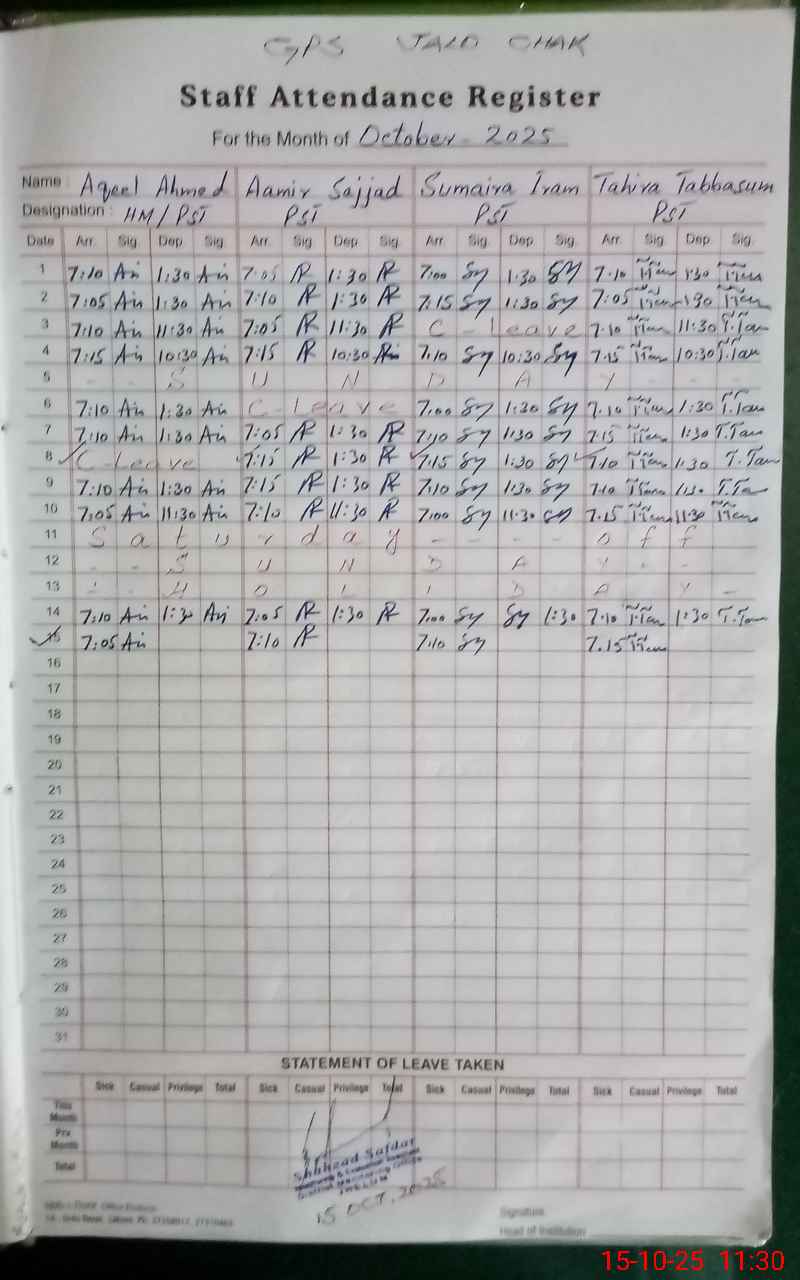 GPS JALO CHAK
Staff Attendance Register
For the Month of October - 2025
Name : Aqeel Ahmed Aamir Sajjad Sumaira Iram Tahira Tabbasum
Designation : HM/PST PST PST PST
Date Arr. Sig. Dep. Sig. Arr. Sig. Dep. Sig. Arr. Sig. Dep. Sig. Arr. Sig. Dep. Sig.
1 7:10 1:30 7:05 1:30 7:00 Sy 1:30 Sy 7:10 1:30
2 7:05 1:30 7:10 1:30 7:15 Sy 1:30 Sy 7:05 1:30
3 7:10 11:30 7:05 11:30 C - Leave 7:10 11:30
4 7:15 10:30 7:15 10:30 7:10 Sy 10:30 Sy 7:15 10:30
5 - - S U N D A Y - -
6 7:10 1:30 C - Leave 7:00 Sy 1:30 Sy 7:10 1:30
7 7:10 1:30 7:05 1:30 7:10 Sy 1:30 Sy 7:15 1:30
8 C - Leave 7:15 1:30 7:15 Sy 1:30 Sy 7:10 1:30
9 7:10 1:30 7:15 1:30 7:10 Sy 1:30 Sy 7:10 1:30
10 7:05 11:30 7:10 11:30 7:00 Sy 11:30 Sy 7:15 11:30
11 S a t u r d a y - - - - o f f
12 - - S U N D A Y - -
13 - - H O L I D A Y -
14 7:10 1:30 7:05 1:30 7:00 Sy Sy 1:30 7:10 1:30
15 7:05 7:10 7:10 Sy 7.15
16
17
18
19
20
21
22
23
24
25
26
27
28
29
30
31
STATEMENT OF LEAVE TAKEN
Sick Casual Privilege Total Sick Casual Privilege Total Sick Casual Privilege Total Sick Casual Privilege Total
This Month
Pre Month
Total
Shahzad Safdar
15 OCT, 2025
Signature
Head of Institution
15-10-25 11:30